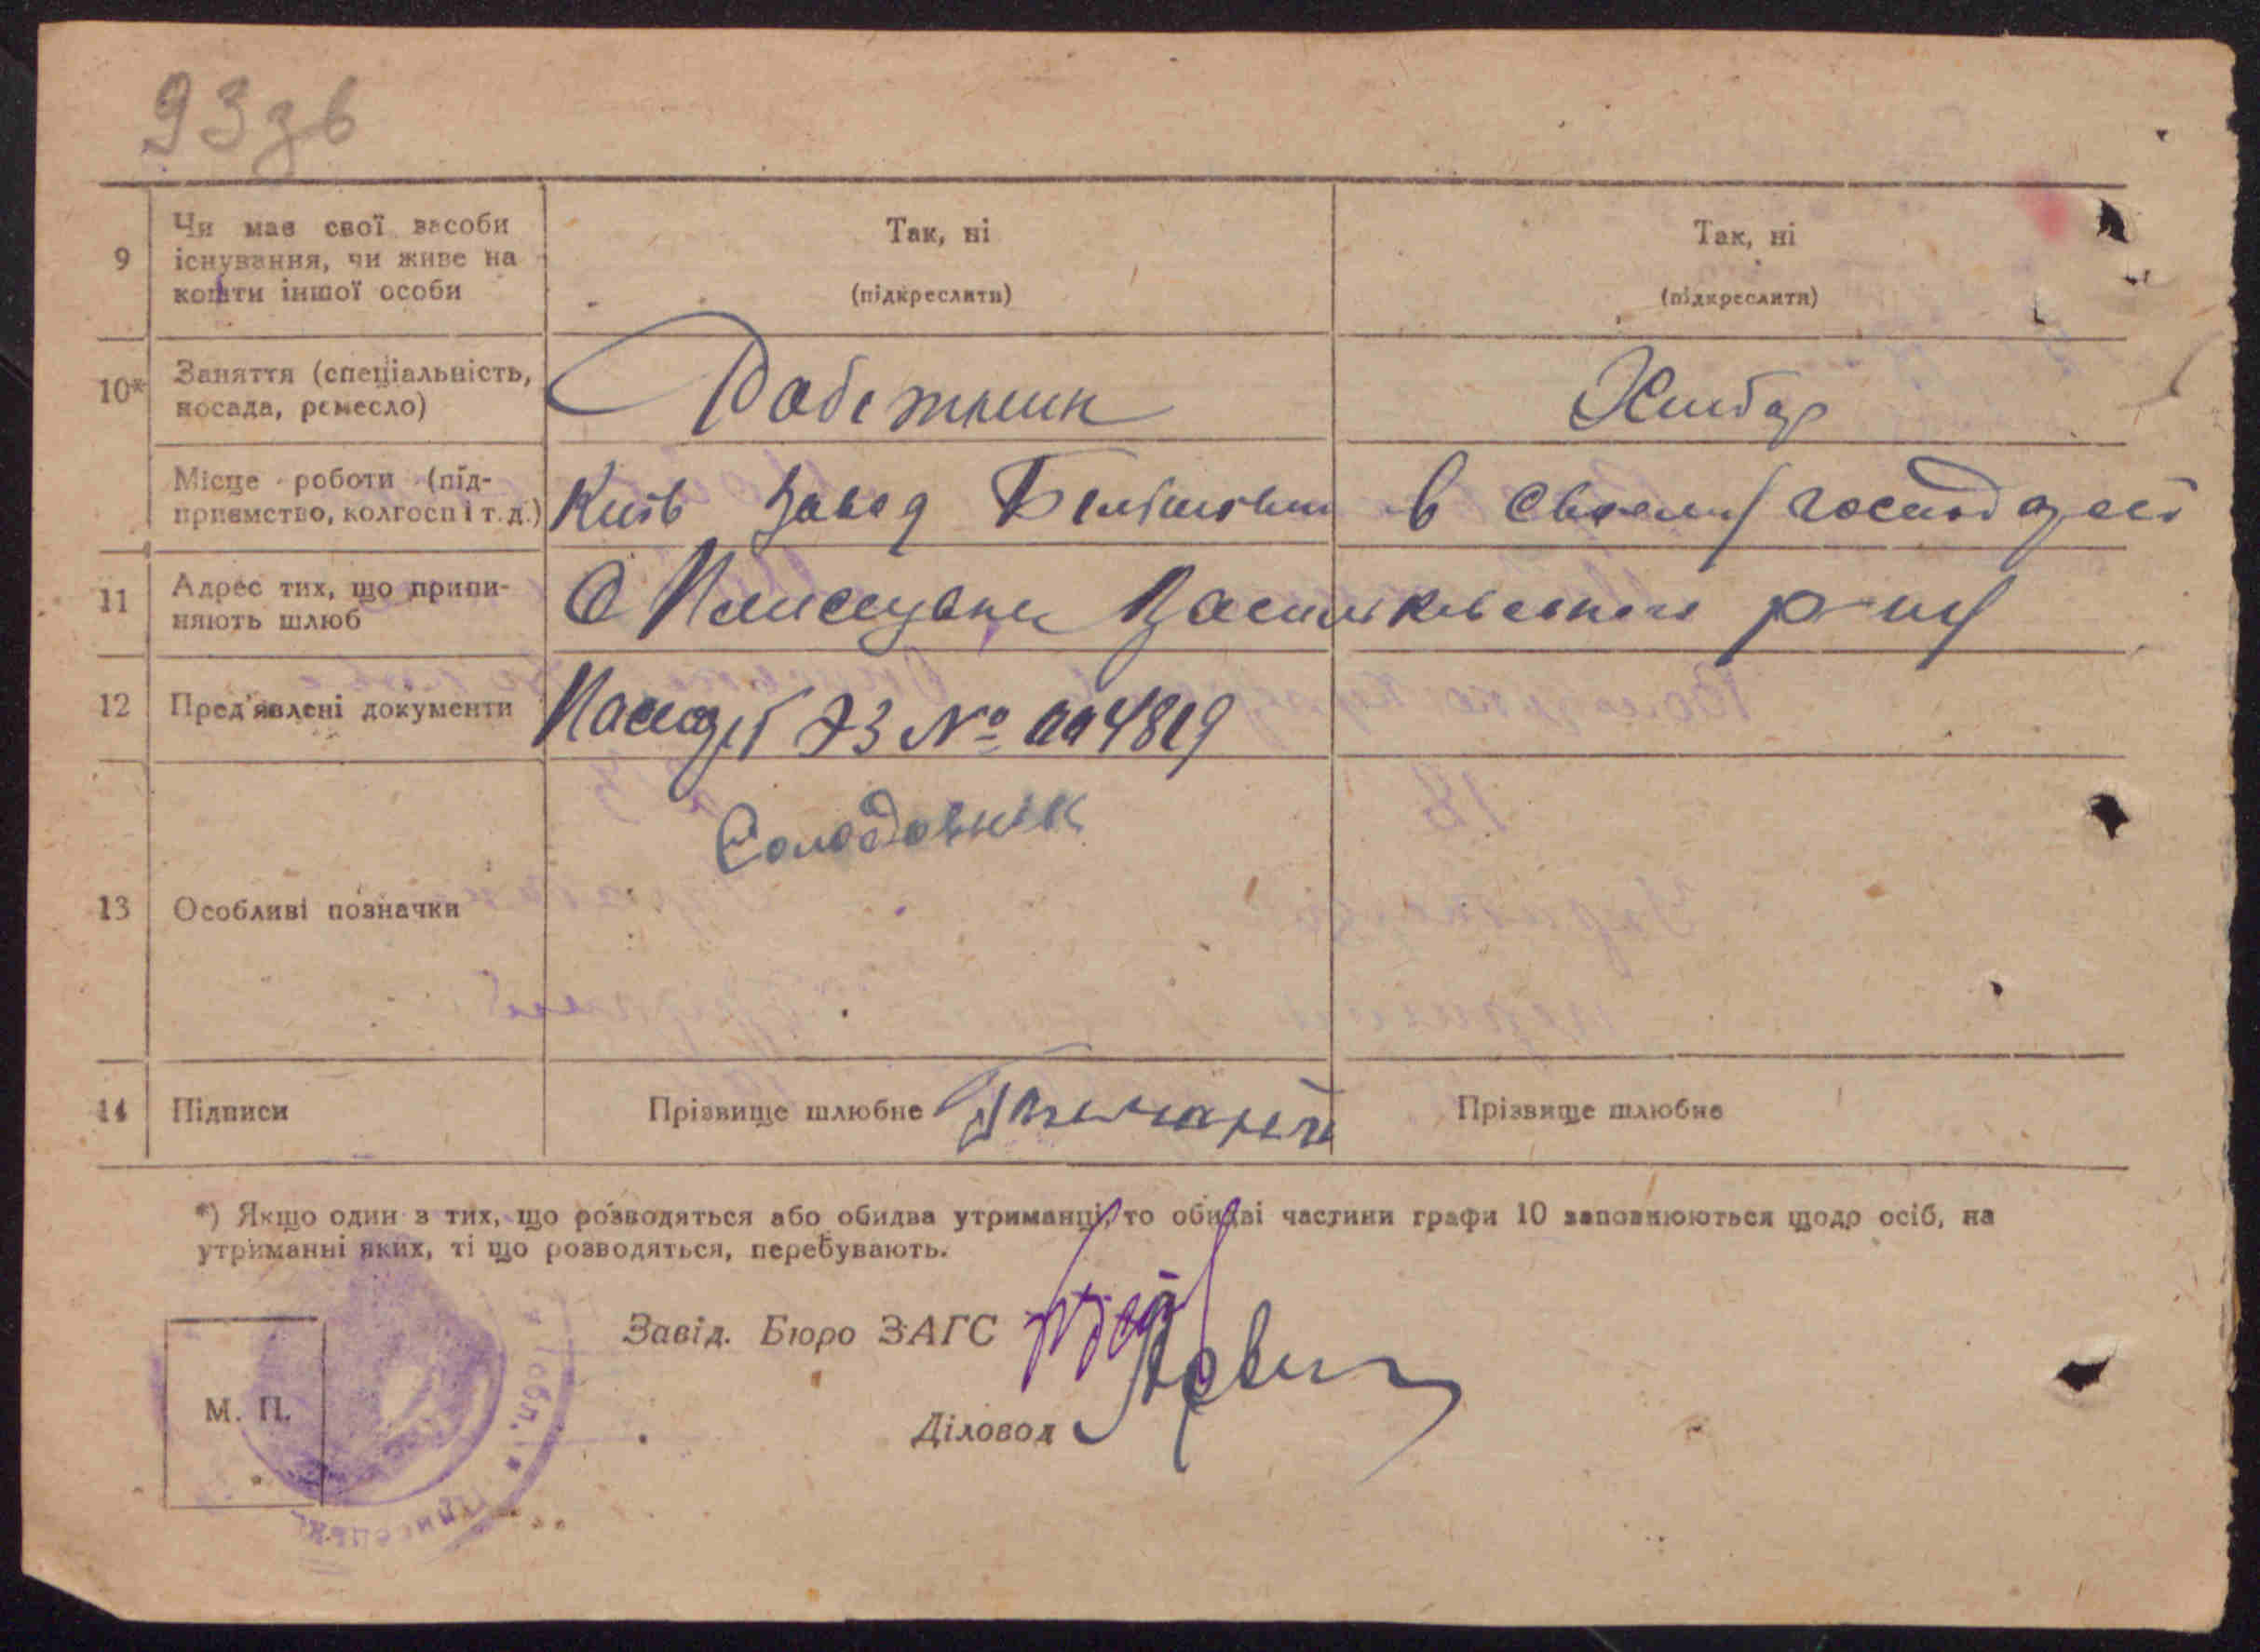 93зв
9 Чи має свої засоби існування, чи живе на кошти іншої особи
Так, ні
(підкреслити)
Так, ні
(підкреслити)
10* Заняття (спеціальність, посада, ремесло)
Робетник
Хлібор
Місце роботи (підприємство, колгосп і т. д.)
Київ завод Більшовик
в своему господарс
11 Адрес тих, що припиняють шлюб
С Плисецьке Васильковського р-ну
12 Пред'явлені документи
Паспорт ЯЗ №
Солодовнік
13 Особливі позначки
14 Підписи
Прізвище шлюбне
Прізвище шлюбне
*) Якщо один з тих, що розводяться або обидва утриманці, то обидві частини графи 10 заповнюються щодо осіб, на
утриманні яких, ті що розводяться, перебувають.
Завід. Бюро ЗАГС
М. П.
Діловод
обл.